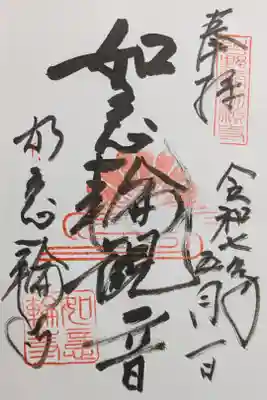 奉拝
令和七年五月一日
如意輪観音
如意輪寺
如意輪寺